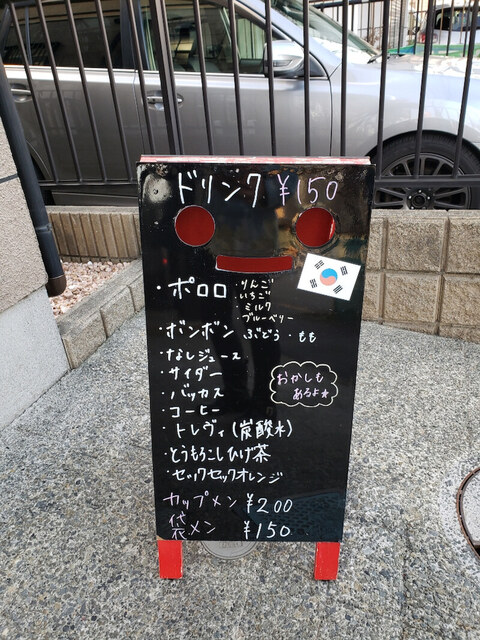 ドリンク ¥150
・ポロロ ・りんご
・いちご
ミルク
ブルーベリー
・ボンボン ぶどう・もも
・なしジュース
・サイダー
・バッカス
・コーヒー
・トレヴィ(炭酸水)
・とうもろこしひげ茶
・セックセックオレンジ
おかしも
あるよ★
カップメン ¥200
袋メン ¥150